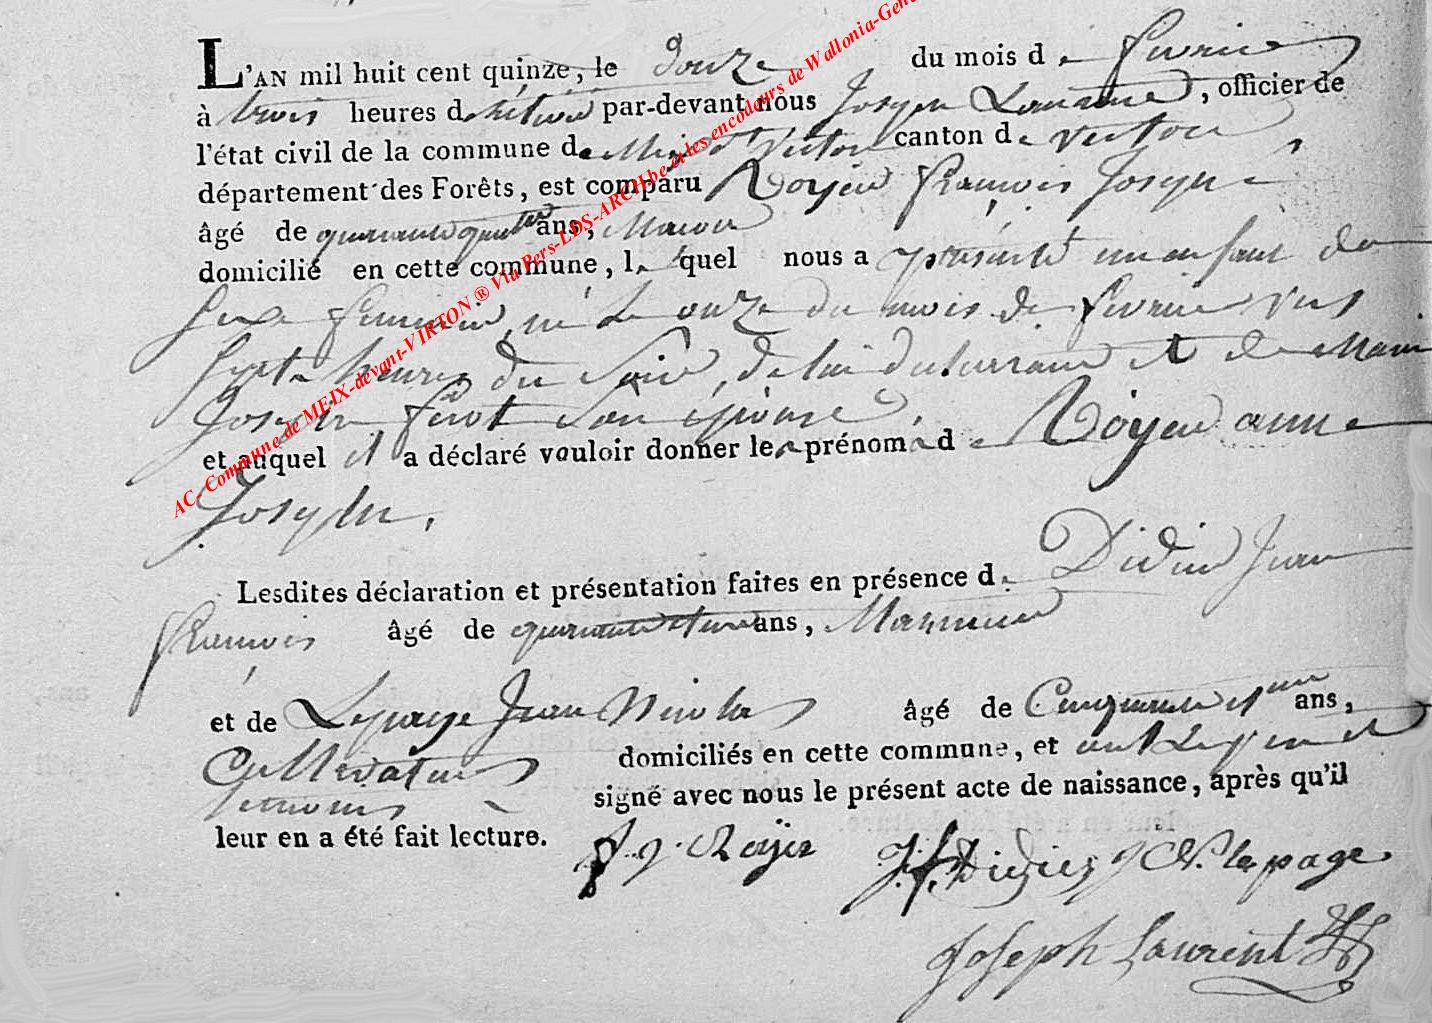 L'AN mil huit cent quinze, le douze du mois de fevrier
à trois heures de relevée par-devant nous Joseph Laurent, officier de
l'état civil de la commune de Meix dt Virton canton de virton
département des Forêts, est comparu Royer françois Joseph
âgé de quarante quatre ans, Macon
domicilié en cette commune, lequel nous a présenté un enfant de
sexe feminin né le onze du mois de fevrier vers
sept heures du soir, de lui déclarant et de Marie
Joseph son épouse,
et auquel il a déclaré vouloir donner les prénoms de Royer anne
Josephe,
Lesdites déclaration et présentation faites en présence de Didier Jean
françois âgé de quarante et un ans,
et de Lepage Jean Nicolas âgé de Cinquante et un ans,
Cultivateurs domiciliés en cette commune, et ont le pere et
temoins signé avec nous le présent acte de naissance, après qu'il
leur en a été fait lecture.
f. j. Royer J. f. Didier j N. lepage
Joseph Laurent
AC- Commune de MEIX-devant-VIRTON ® Via Pers-LDS-ARCH.be et les encodeurs de Wallonia-Gen